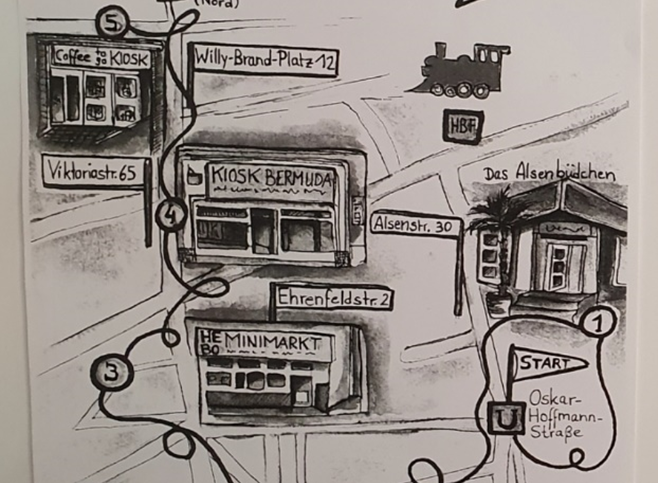 (Nord)
5
Coffee to go KIOSK
Willy-Brand-Platz 12
HBF
Viktoriastr. 65
KIOSK BERMUDA
Das Alsenbüdchen
4
Alsenstr. 30
Ehrenfeldstr. 2
HE MINIMARKT
BO
1
3
START
U
Oskar-
Hoffmann-
Straße